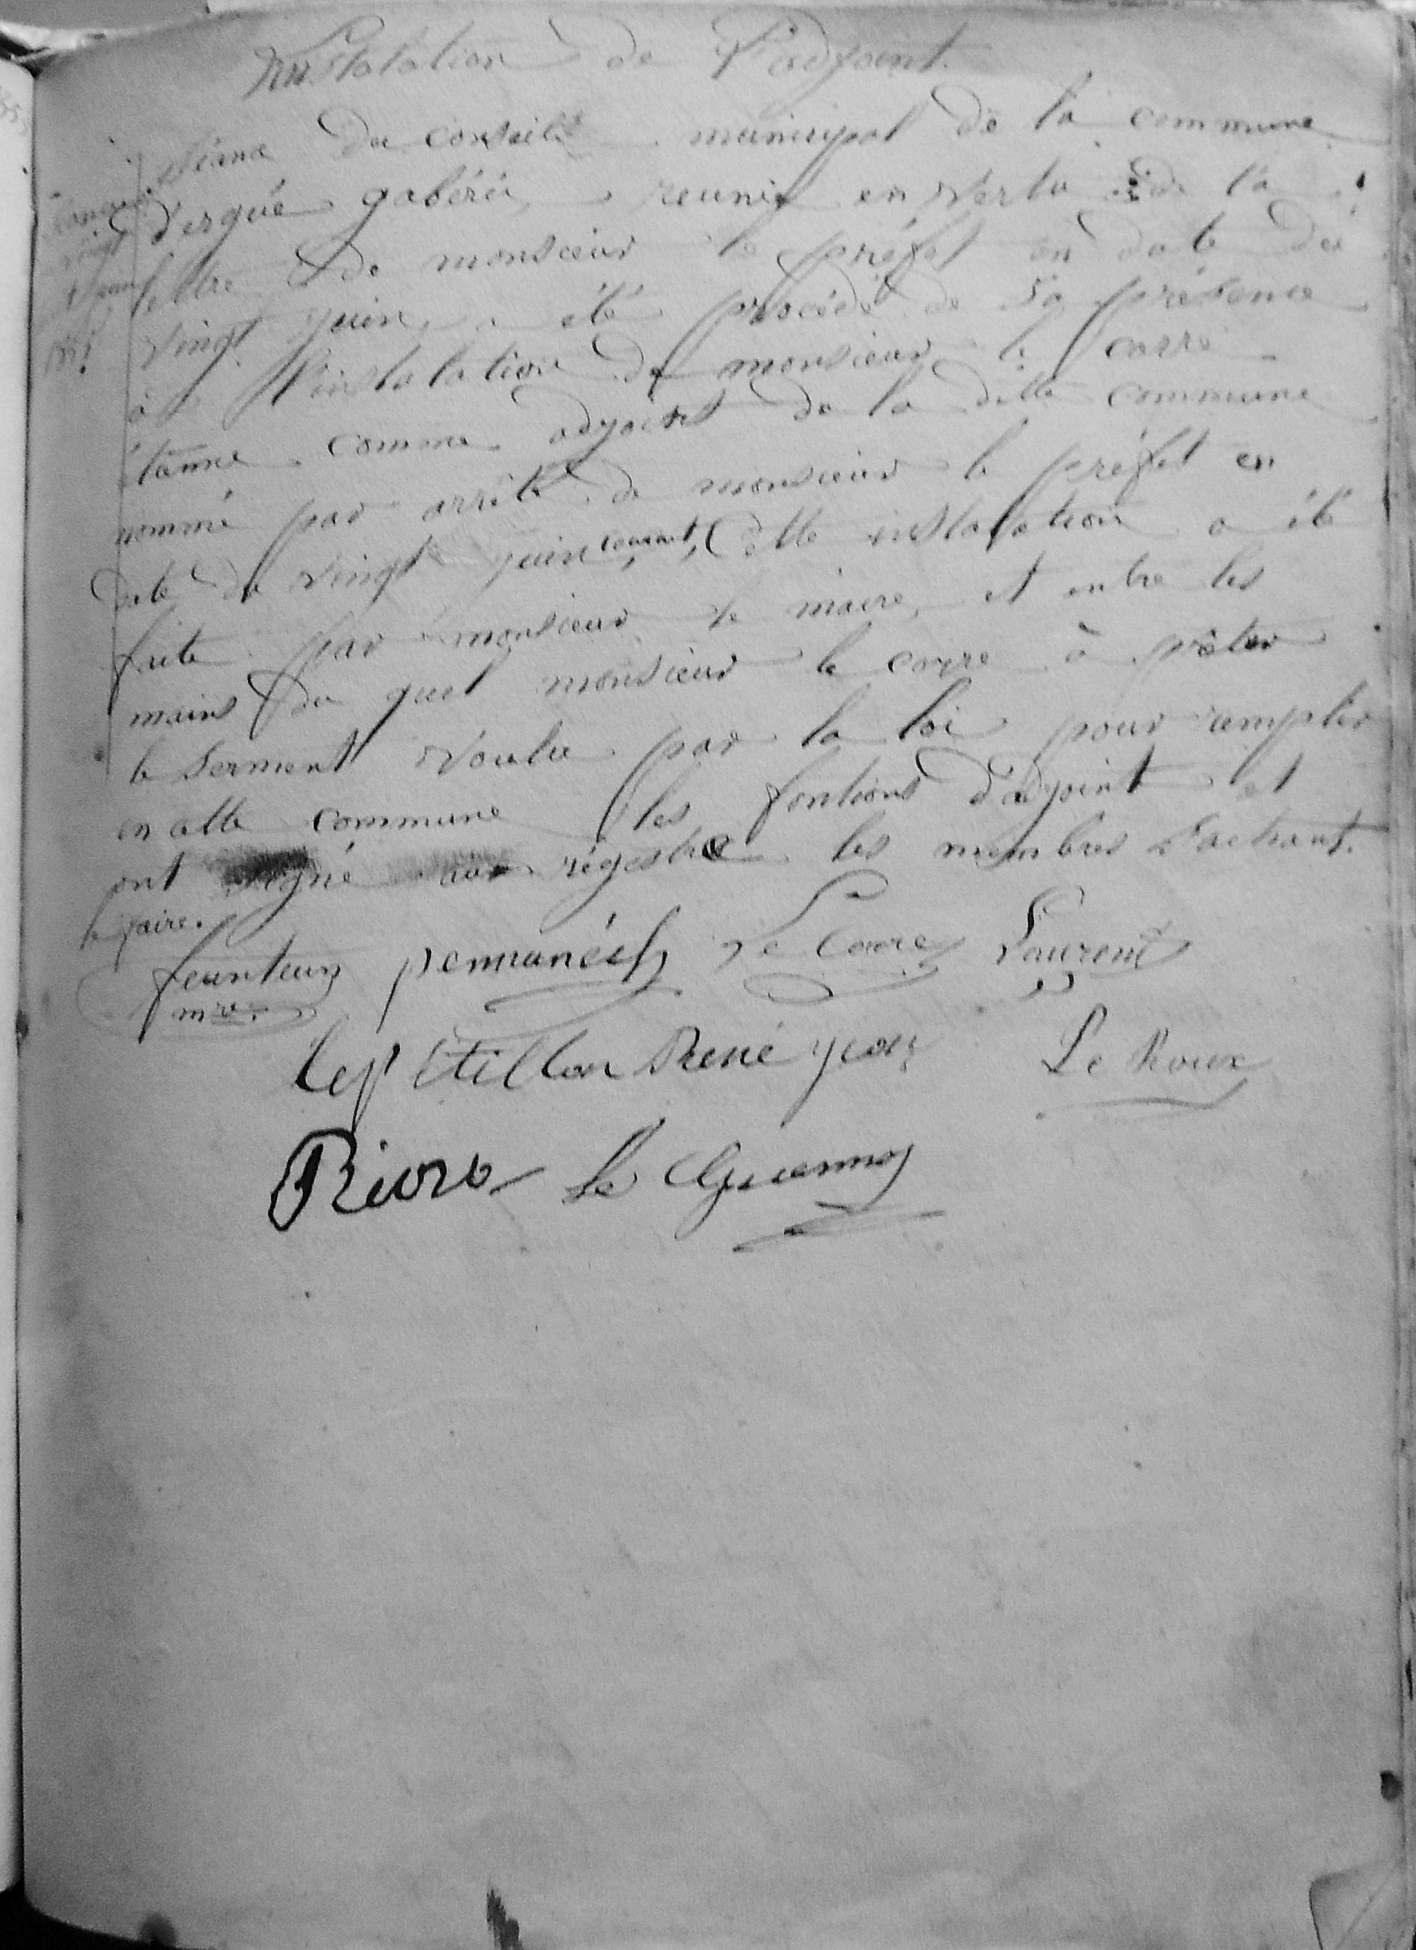 Installation de l'adjoint.
Séance du conseil municipal de la commune
d'ergué gabéric, reunit en vertu de la
lettre de monsieur le préfet en date du
vingt juin, a été procédé de sa présence
à l'installation de monsieur le corre
étanne comme adjoint de la dille commune
nommé par arrêté de monsieur le préfet en
date du vingt juin courant, Cette installation a été
faite par monsieur le maire, et entre les
mains du quel monsieur le corre à prêter
le serment voulu par la loi pour remplir
en cette commune les fontions d'adjoint et
ont signé au régistre les membres sachant
le faire.
feunteun pennanéch Le Corre Laurent
mre.
Le petillon René yeon Le Roux
Riou Le Guennoy